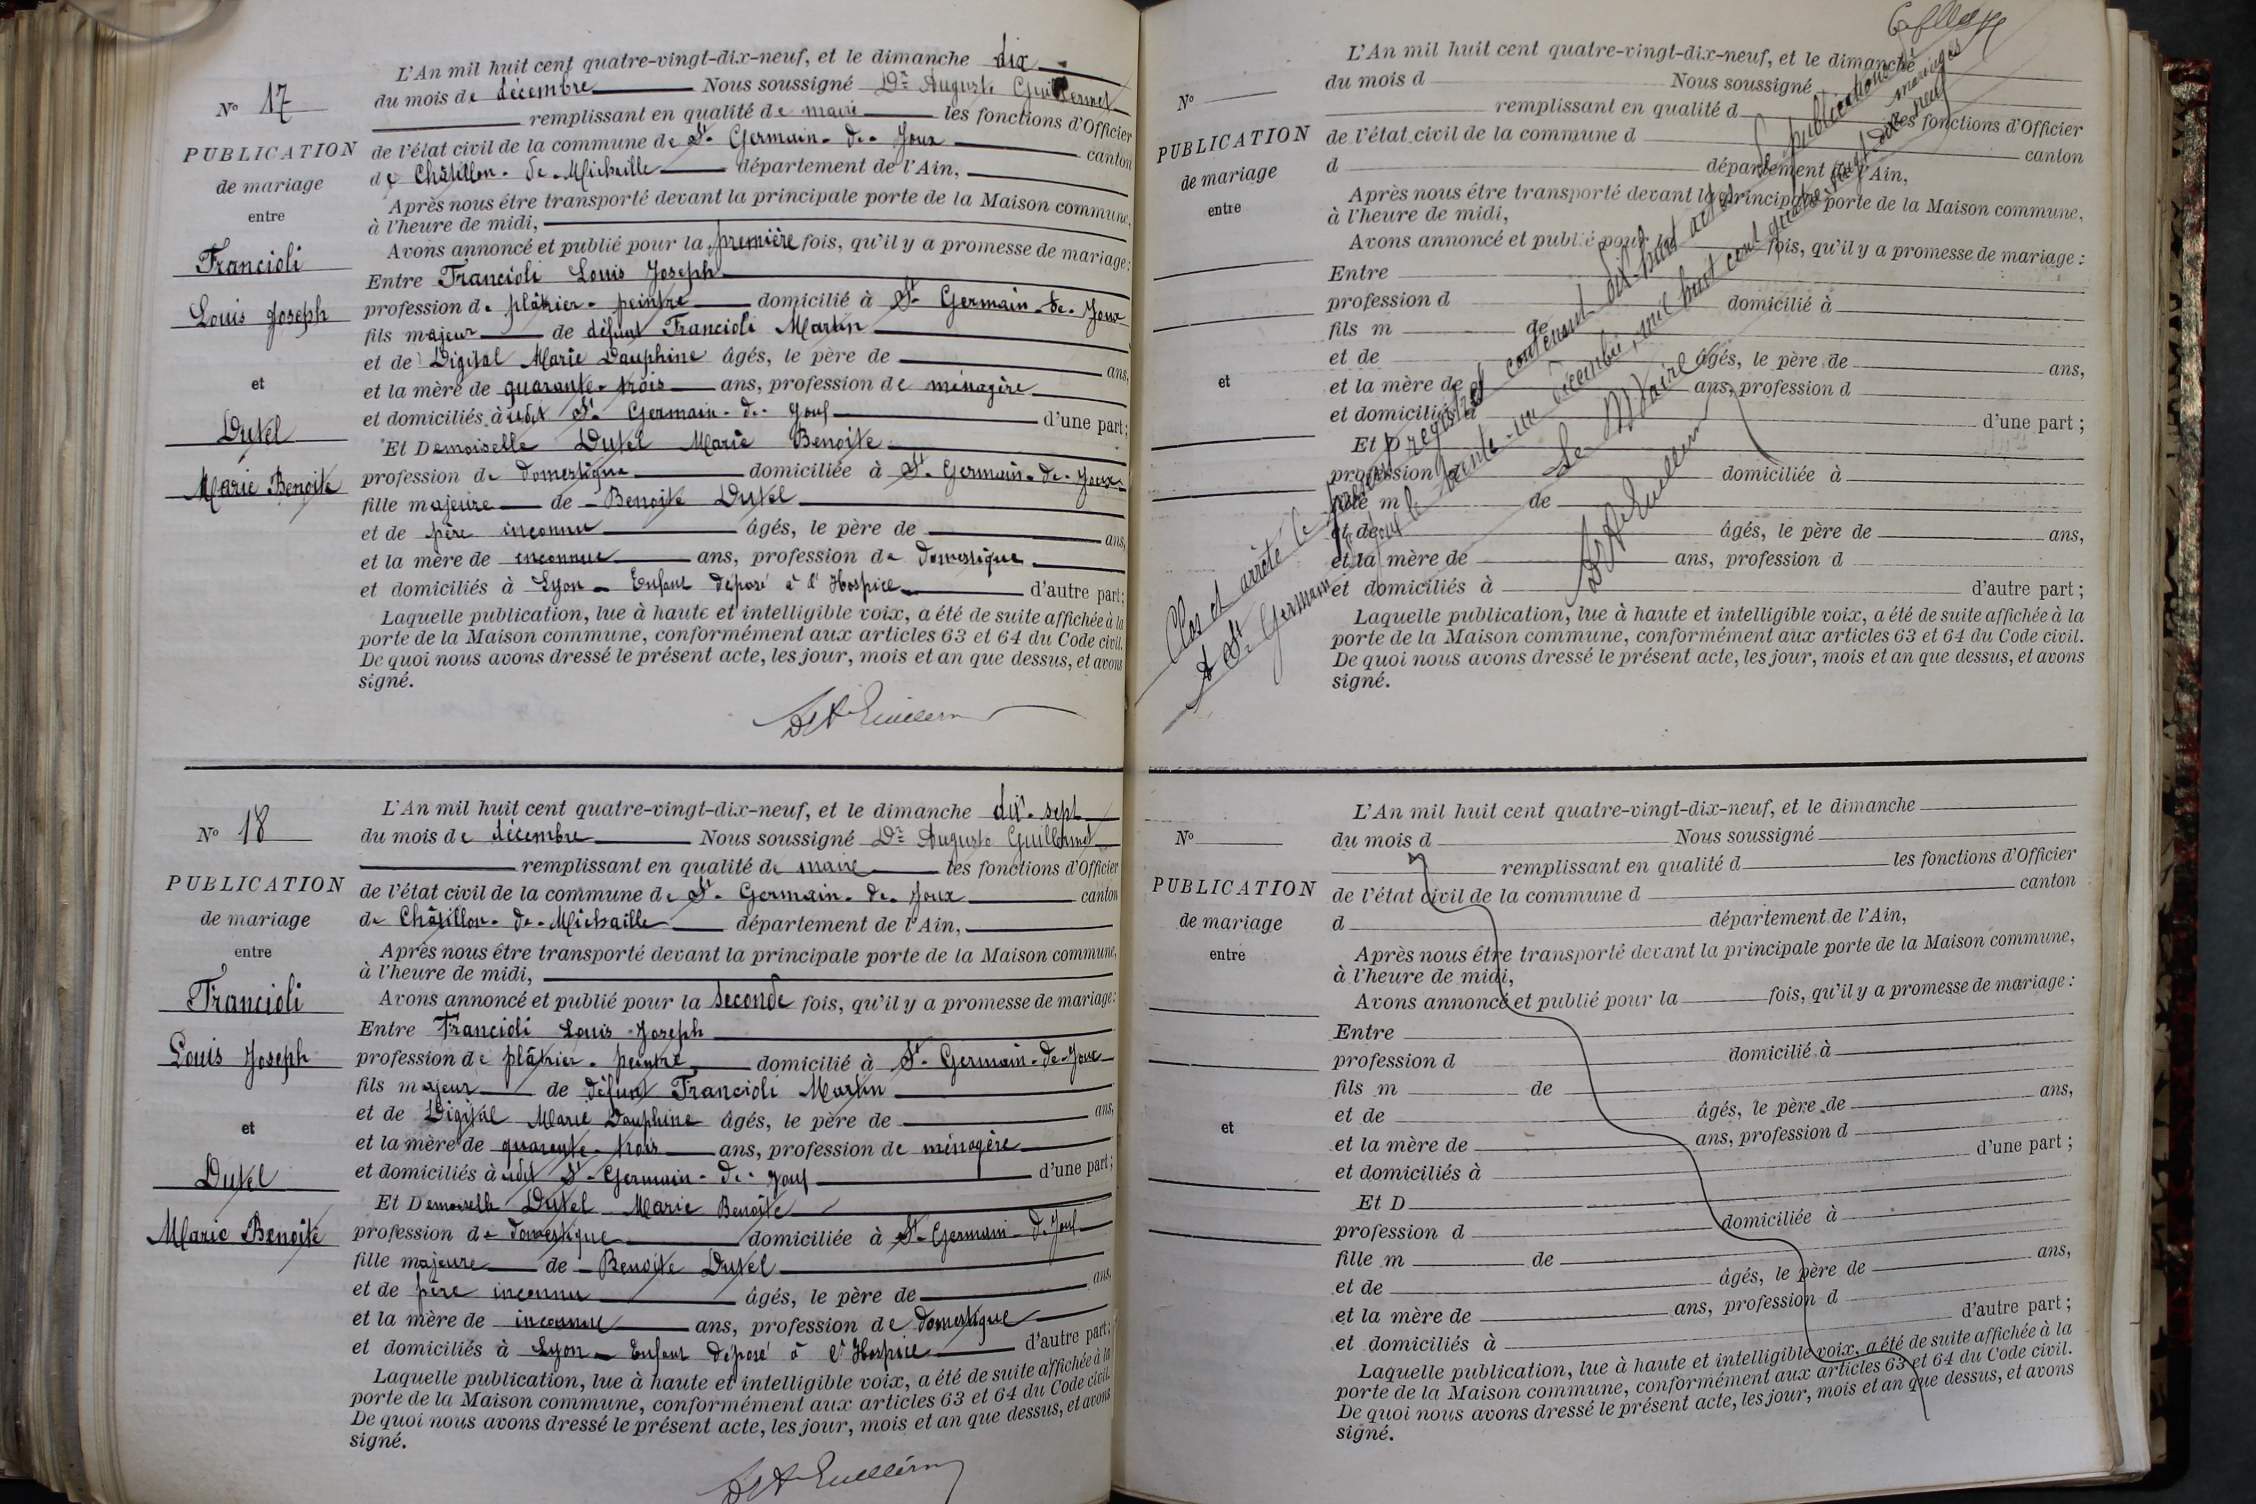 L'An mil huit cent quatre-vingt-dix-neuf, et le dimanche dix
N° 17
du mois de décembre Nous soussigné Dr Auguste Guillermet
remplissant en qualité de maire les fonctions d'Officier
PUBLICATION
de l'état civil de la commune de St- Germain-de-Joux canton
de mariage
de Châtillon-de-Michaille département de l'Ain,
entre
Après nous être transporté devant la principale porte de la Maison commune,
à l'heure de midi,
Avons annoncé et publié pour la première fois, qu'il y a promesse de mariage:
Francioli
Entre Francioli Louis Joseph
Louis Joseph
profession de plâtrier-peintre domicilié à St- Germain-de-Joux
fils majeur de défunt Francioli Martin
et de Digital Marie Dauphine âgés, le père de ans,
et
et la mère de quarante-trois ans, profession de ménagère
et domiciliés à udit St- Germain-de-Joux d'une part;
Dutel
Et Demoiselle Dutel Marie Benoite
Marie Benoite
profession de domestique domiciliée à St- Germain-de-Joux
fille majeure de Benoite Dutel
et de père inconnu âgés, le père de ans,
et la mère de inconnue ans, profession de domestique
et domiciliés à Lyon - Enfant déposé à l'Hospice d'autre part;
Laquelle publication, lue à haute et intelligible voix, a été de suite affichée à la
porte de la Maison commune, conformément aux articles 63 et 64 du Code civil.
De quoi nous avons dressé le présent acte, les jour, mois et an que dessus, et avons
signé.
L'An mil huit cent quatre-vingt-dix-neuf, et le dimanche dix-sept
N° 18
du mois de décembre Nous soussigné Dr Auguste Guillermet
remplissant en qualité de maire les fonctions d'Officier
PUBLICATION
de l'état civil de la commune de St- Germain-de-Joux canton
de mariage
de Châtillon-de-Michaille département de l'Ain,
entre
Après nous être transporté devant la principale porte de la Maison commune,
à l'heure de midi,
Francioli
Avons annoncé et publié pour la seconde fois, qu'il y a promesse de mariage:
Entre Francioli Louis Joseph
Louis Joseph
profession de plâtrier-peintre domicilié à St- Germain-de-Joux
fils majeur de défunt Francioli Martin
et de Digital Marie Dauphine âgés, le père de ans,
et
et la mère de quarante-trois ans, profession de ménagère
et domiciliés à udit St- Germain-de-Joux d'une part;
Dutel
Et Demoiselle Dutel Marie Benoîte
Marie Benoîte
profession de domestique domiciliée à St- Germain-de-Joux
fille majeure de Benoite Dutel
et de père inconnu âgés, le père de ans,
et la mère de inconnue ans, profession de domestique
et domiciliés à Lyon - Enfant déposé à l'Hospice d'autre part;
Laquelle publication, lue à haute et intelligible voix, a été de suite affichée à la
porte de la Maison commune, conformément aux articles 63 et 64 du Code civil.
De quoi nous avons dressé le présent acte, les jour, mois et an que dessus, et avons
signé.
L'An mil huit cent quatre-vingt-dix-neuf, et le dimanche
N°
du mois d Nous soussigné
remplissant en qualité d les fonctions d'Officier
PUBLICATION
de l'état civil de la commune d canton
de mariage
d département de l'Ain,
entre
Après nous être transporté devant la principale porte de la Maison commune,
à l'heure de midi,
Avons annoncé et publié pour la fois, qu'il y a promesse de mariage:
Entre
profession d domicilié à
fils m de
et de âgés, le père de ans,
et
et la mère de ans, profession d
et domiciliés à d'une part;
Et D
profession d domiciliée à
fille m de
et de âgés, le père de ans,
et la mère de ans, profession d
et domiciliés à d'autre part;
Laquelle publication, lue à haute et intelligible voix, a été de suite affichée à la
porte de la Maison commune, conformément aux articles 63 et 64 du Code civil.
De quoi nous avons dressé le présent acte, les jour, mois et an que dessus, et avons
signé.
Clos et arrêté le présent registre contenant dix-huit actes de publications de mariages
A St- Germain-de-Joux le trente-un décembre, mil huit cent quatre-vingt-dix-neuf
Le Maire
L'An mil huit cent quatre-vingt-dix-neuf, et le dimanche
N°
du mois d Nous soussigné
remplissant en qualité d les fonctions d'Officier
PUBLICATION
de l'état civil de la commune d canton
de mariage
d département de l'Ain,
entre
Après nous être transporté devant la principale porte de la Maison commune,
à l'heure de midi,
Avons annoncé et publié pour la fois, qu'il y a promesse de mariage:
Entre
profession d domicilié à
fils m de
et de âgés, le père de ans,
et
et la mère de ans, profession d
et domiciliés à d'une part;
Et D
profession d domiciliée à
fille m de
et de âgés, le père de ans,
et la mère de ans, profession d
et domiciliés à d'autre part;
Laquelle publication, lue à haute et intelligible voix, a été de suite affichée à la
porte de la Maison commune, conformément aux articles 63 et 64 du Code civil.
De quoi nous avons dressé le présent acte, les jour, mois et an que dessus, et avons
signé.